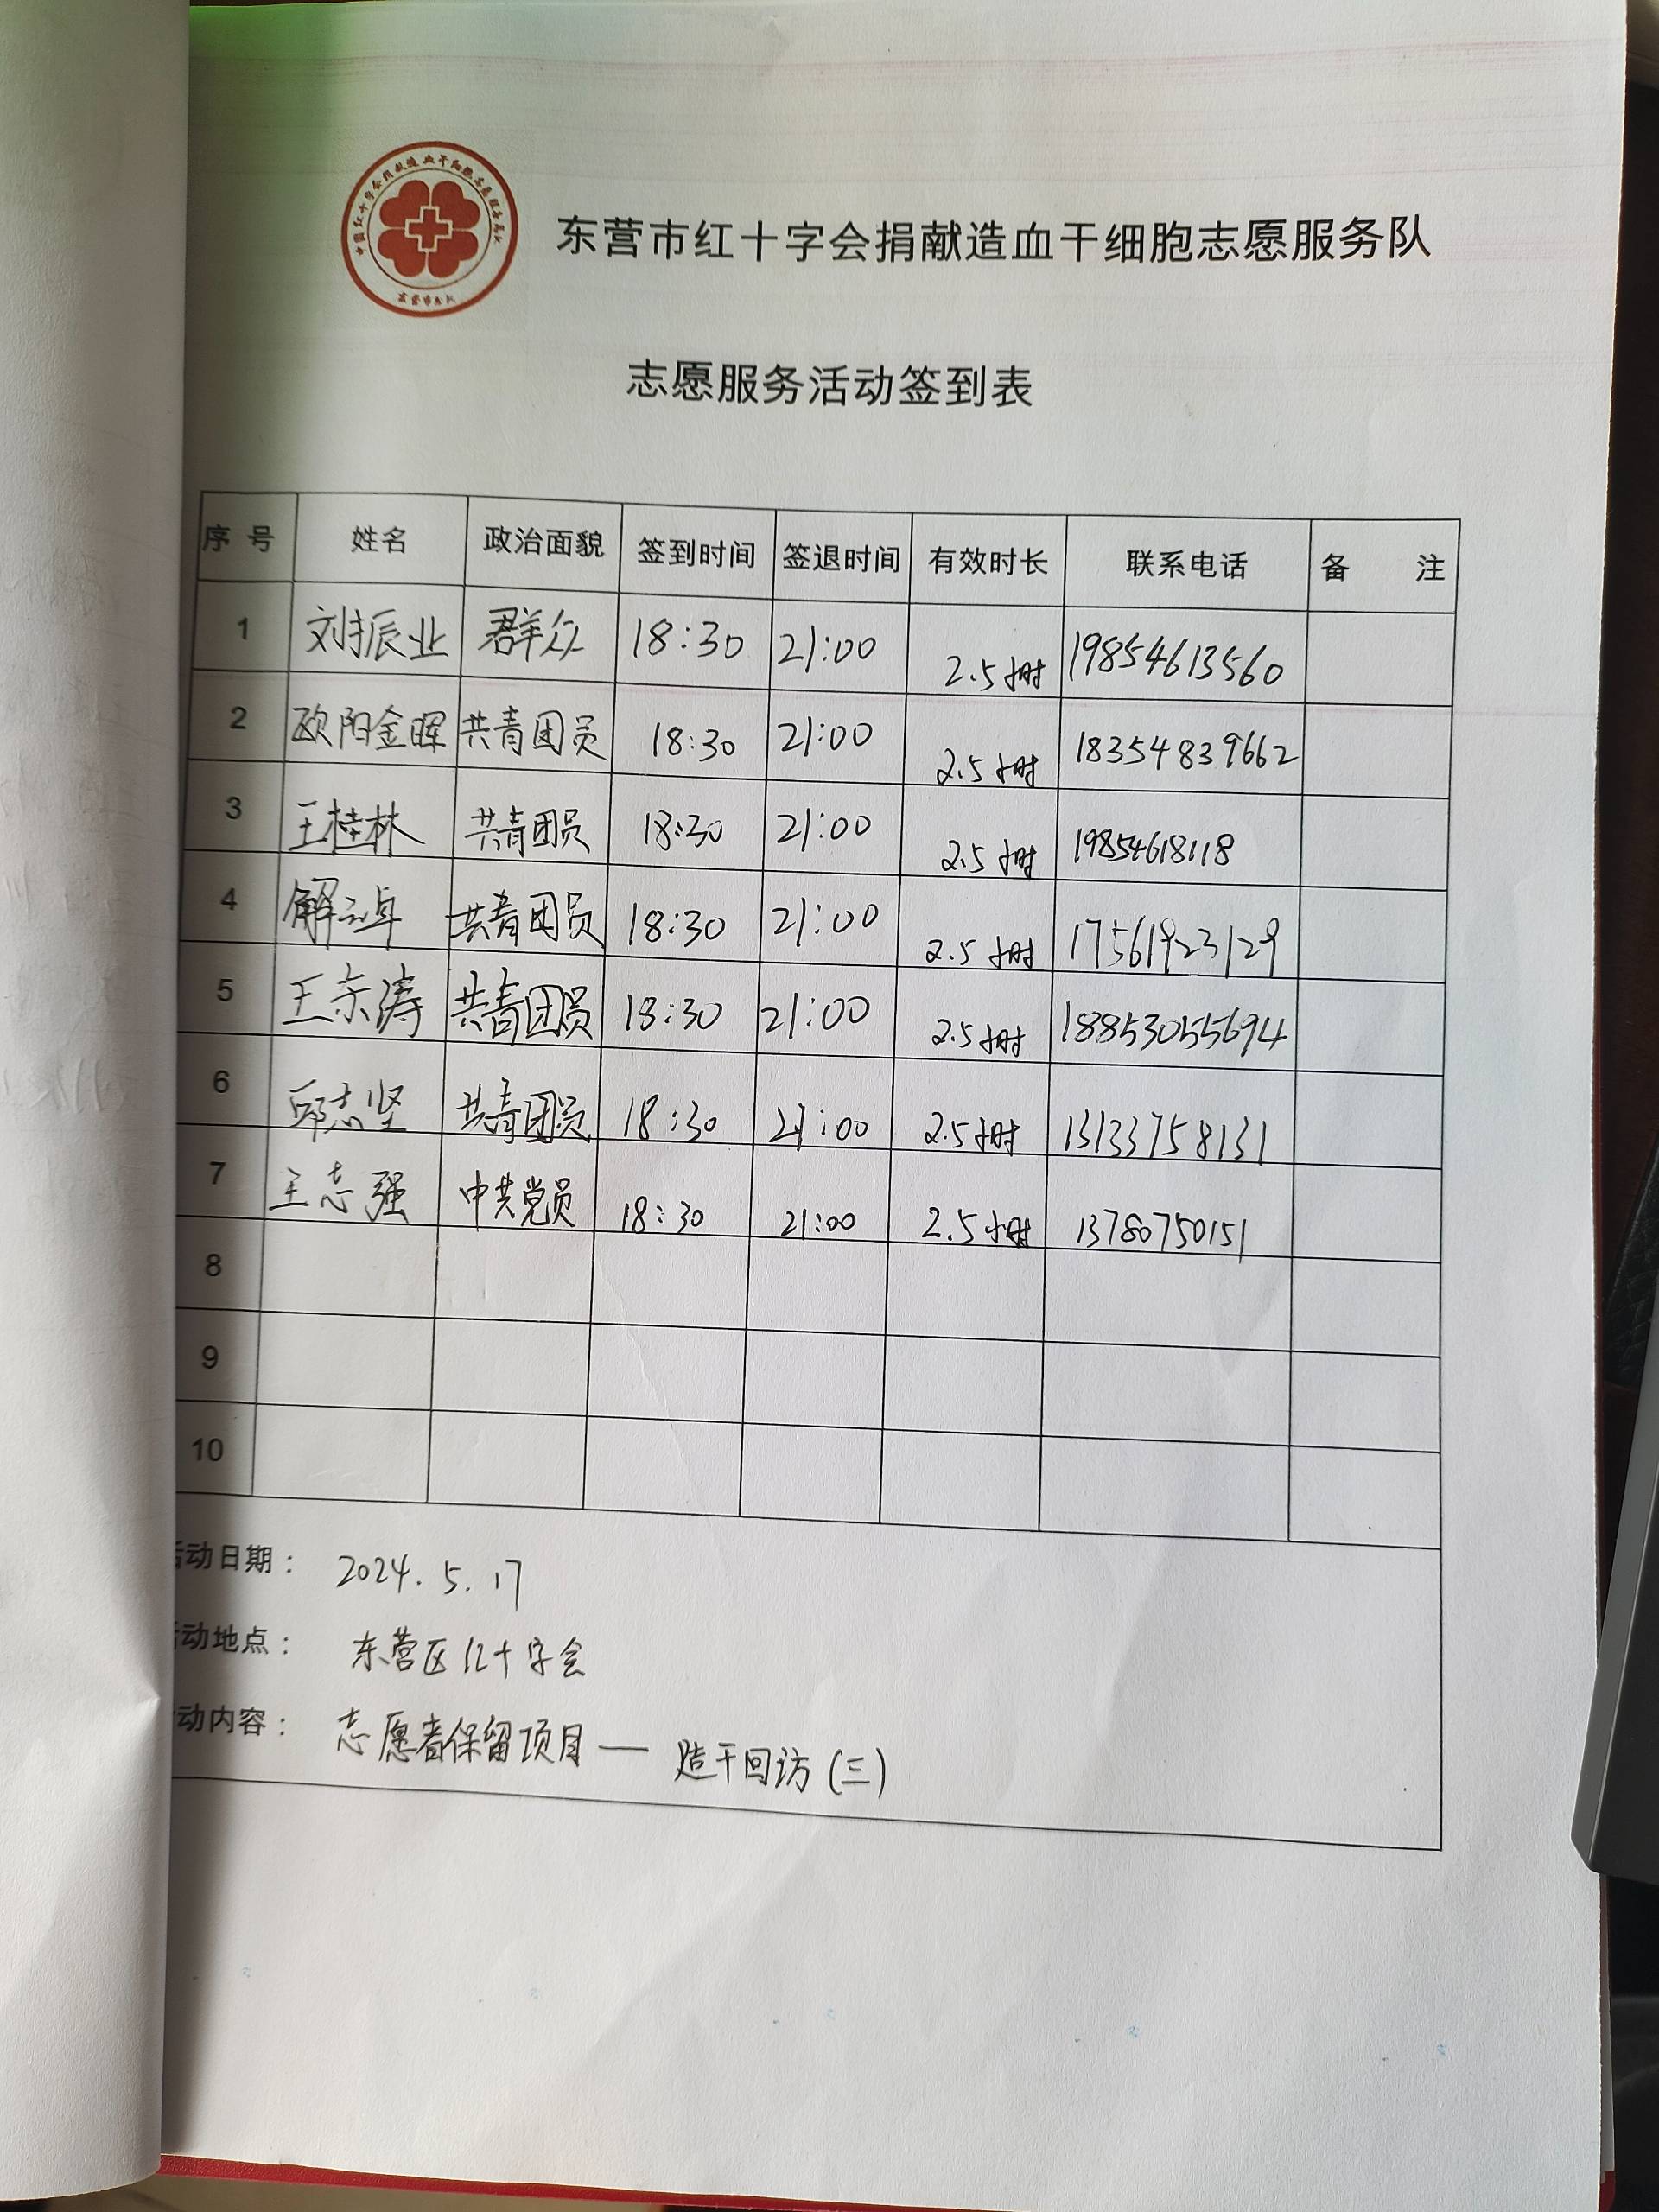 东营市红十字会捐献造血干细胞志愿服务队
志愿服务活动签到表
序 号 姓名 政治面貌 签到时间 签退时间 有效时长 联系电话 备 注
1 刘振业 群众 18:30 21:00 2.5小时 19854613560
2 欧阳金晖 共青团员 18:30 21:00 2.5小时 18354839662
3 王桂林 共青团员 18:30 21:00 2.5小时 19854618118
4 解云卓 共青团员 18:30 21:00 2.5小时 17561923129
5 王宗涛 共青团员 18:30 21:00 2.5小时 18853055694
6 邱志坚 共青团员 18:30 21:00 2.5小时 13133758131
7 王志强 中共党员 18:30 21:00 2.5小时 13780750151
8
9
10
活动日期： 2024.5.17
活动地点： 东营区红十字会
活动内容： 志愿者保留项目— 造干回访(三)